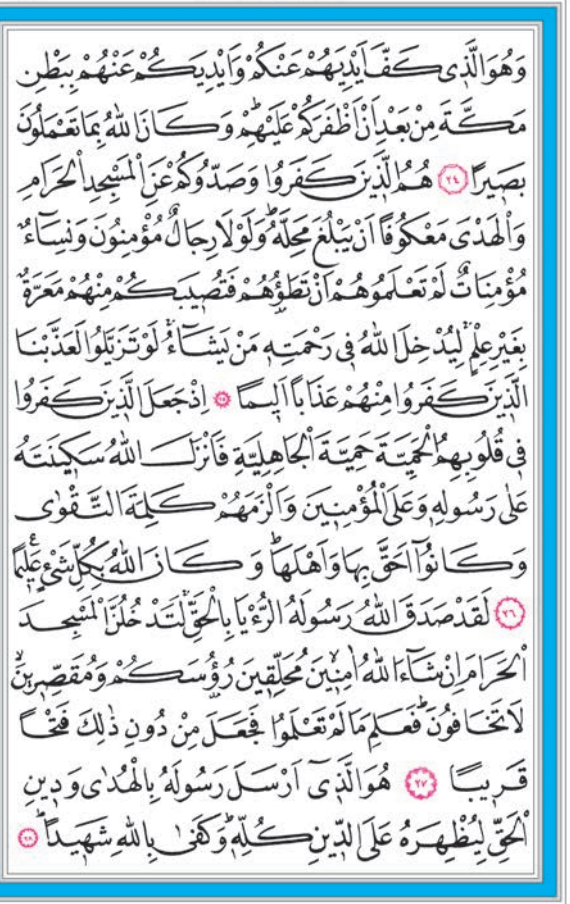 وَهُوَ الَّذ۪ي كَفَّ اَيْدِيَهُمْ عَنْكُمْ وَاَيْدِيَكُمْ عَنْهُمْ بِبَطْنِ
مَكَّةَ مِنْ بَعْدِ اَنْ اَظْفَرَكُمْ عَلَيْهِمْۜ وَكَانَ اللّٰهُ بِمَا تَعْمَلُونَ
بَص۪يرًا ﴿٢٤﴾ هُمُ الَّذ۪ينَ كَفَرُوا وَصَدُّوكُمْ عَنِ الْمَسْجِدِ الْحَرَامِ
وَالْهَدْيَ مَعْكُوفًا اَنْ يَبْلُغَ مَحِلَّهُۜ وَلَوْلَا رِجَالٌ مُؤْمِنُونَ وَنِسَٓاءٌ
مُؤْمِنَاتٌ لَمْ تَعْلَمُوهُمْ اَنْ تَطَؤُ۫هُمْ فَتُص۪يبَكُمْ مِنْهُمْ مَعَرَّةٌ
بِغَيْرِ عِلْمٍۚ لِيُدْخِلَ اللّٰهُ ف۪ي رَحْمَتِه۪ مَنْ يَشَٓاءُۚ لَوْ تَزَيَّلُوا لَعَذَّبْنَا
الَّذ۪ينَ كَفَرُوا مِنْهُمْ عَذَابًا اَل۪يمًا ﴿٢٥﴾ اِذْ جَعَلَ الَّذ۪ينَ كَفَرُوا
ف۪ي قُلُوبِهِمُ الْحَمِيَّةَ حَمِيَّةَ الْجَاهِلِيَّةِ فَاَنْزَلَ اللّٰهُ سَك۪ينَتَهُ
عَلٰى رَسُولِه۪ وَعَلَى الْمُؤْمِن۪ينَ وَاَلْزَمَهُمْ كَلِمَةَ التَّقْوٰى
وَكَانُٓوا اَحَقَّ بِهَا وَاَهْلَهَاۜ وَكَانَ اللّٰهُ بِكُلِّ شَيْءٍ عَل۪يمًا
﴿٢٦﴾ لَقَدْ صَدَقَ اللّٰهُ رَسُولَهُ الرُّءْيَا بِالْحَقِّۚ لَتَدْخُلُنَّ الْمَسْجِدَ
الْحَرَامَ اِنْ شَٓاءَ اللّٰهُ اٰمِن۪ينَۙ مُحَلِّق۪ينَ رُؤُ۫سَكُمْ وَمُقَصِّر۪ينَۙ
لَا تَخَافُونَۜ فَعَلِمَ مَا لَمْ تَعْلَمُوا فَجَعَلَ مِنْ دُونِ ذٰلِكَ فَتْحًا
قَر۪يبًا ﴿٢٧﴾ هُوَ الَّذ۪ٓي اَرْسَلَ رَسُولَهُ بِالْهُدٰى وَد۪ينِ
الْحَقِّ لِيُظْهِرَهُ عَلَى الدّ۪ينِ كُلِّه۪ۜ وَكَفٰى بِاللّٰهِ شَه۪يدًاۜ ﴿٢٨﴾